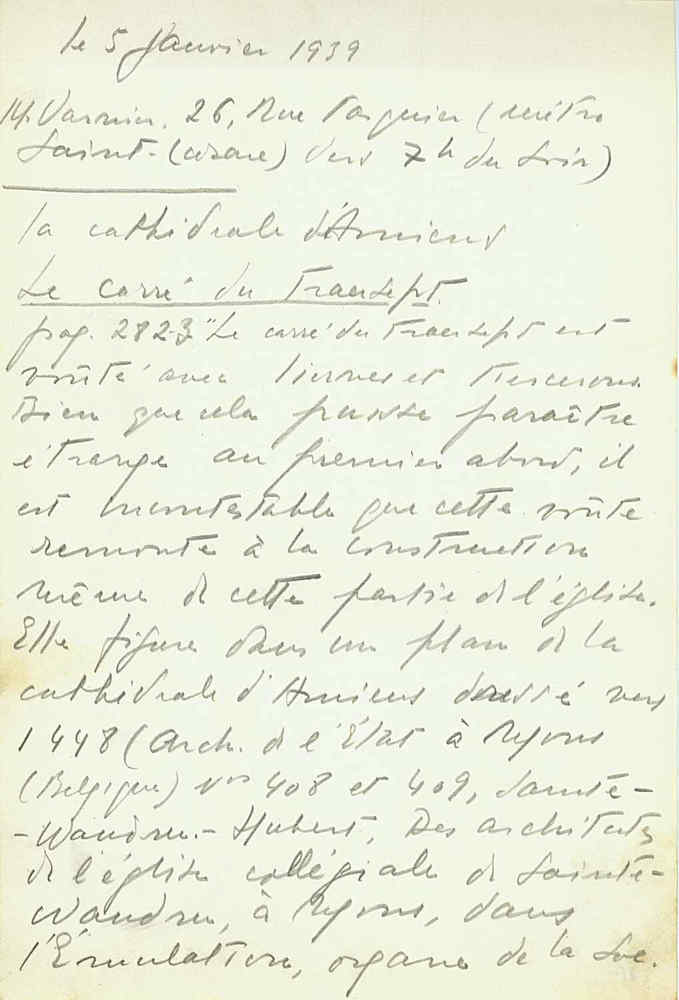 le 5 Janvier 1939
M. Varnier. 26, Rue Pasquier (métro
Saint-(Lazare) vers 7h du soir)
la cathédrale d'Amiens
Le carré du Transept.
pag. 282-3 "Le carré du Transept est
voûté avec liernes et tiercerons.
Bien que cela puisse paraître
étrange au premier abord, il
est incontestable que cette voûte
remonte à la construction
même de cette partie de l'église.
Elle figure dans un plan de la
cathédrale d'Amiens dressé vers
1448 (Arch. de l'État à Mons
(Belgique) nos 408 et 409, Sainte-
-Waudru.- Hubert, Des architectes
de l'église collégiale de Sainte-
Waudru, à Mons, dans
l'Émulation, organe de la Soc.